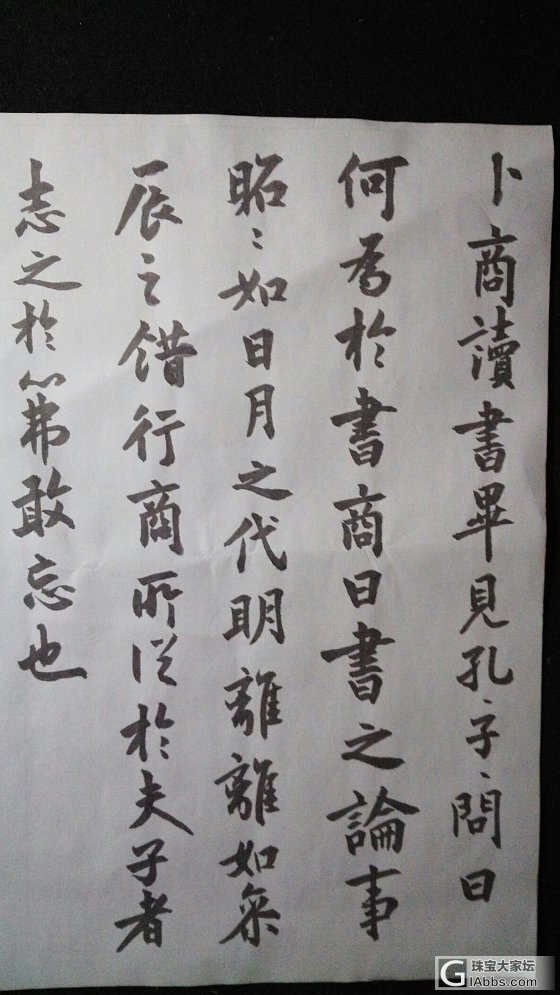 卜商讀書畢見孔子〻問曰
何為於書商曰書之論事
昭〻如日月之代明離離如參
辰之錯行商所從於夫子者
志之於心弗敢忘也
珠宝大家坛
GIAbbs.com